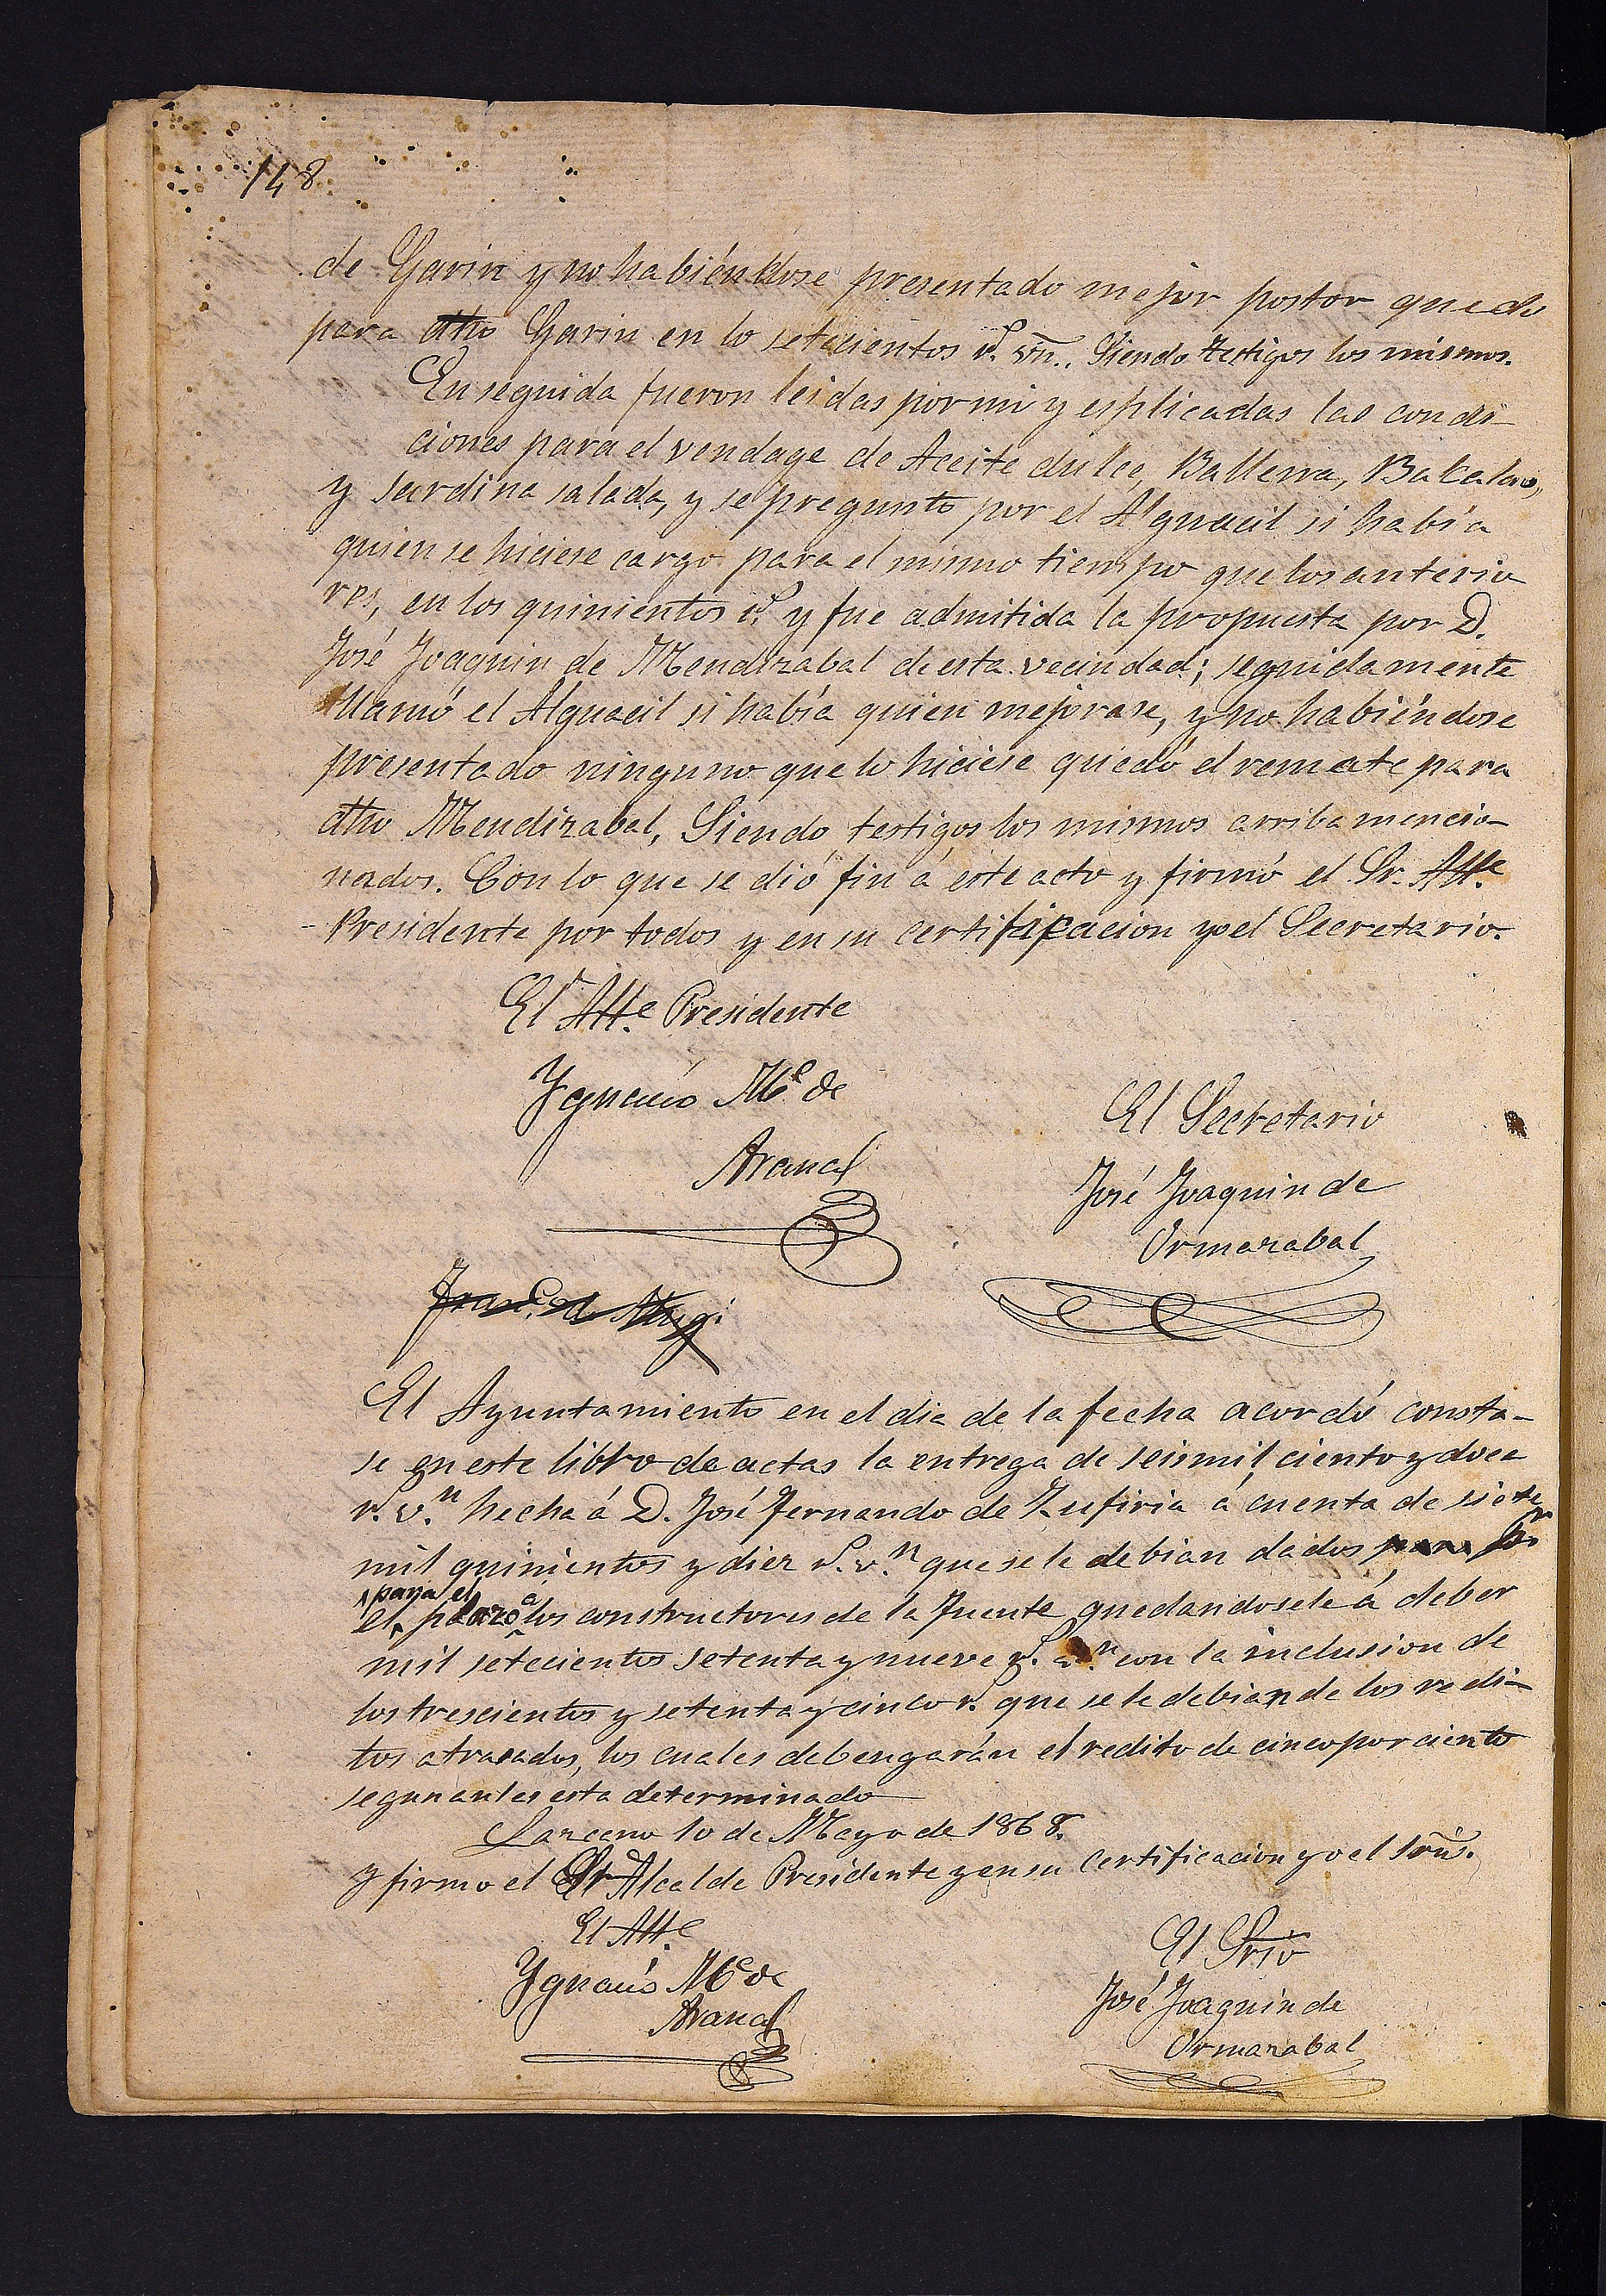 148
de Garin y no habiéndose presentado mejor postor quedo
para dho Garin en lo setecientos r.s vn.. Siendo testigos los mismos.
En seguida fueron leidas por mi y esplicadas las condi-
ciones para el vendage de Aceite dulce, Ballena, Bakalao,
y sardina salada, y se pregunto por el Alguacil si había
quien se hiciese cargo para el mismo tiempo que los anterio
res, en los quinientos r.s y fue admitida la propuesta por D.
José Joaquin de Mendizabal de esta vecindad; seguidamente
llamó el Alguacil si había quien mejorase, y no habiéndose
presentado ninguno que lo hiciese quedó el remate para
dho Mendizabal, Siendo testigos los mismos arriba mencio-
nados. Con lo que se dió fin á este acto y firmó el Sr. Alle
Presidente por todos y en su certificacion yo el Secretario.
El Alle Presidente
Ygnacio M.a de
Arana
El Secretario
José Joaquin de
Ormazabal
El Ayuntamiento en el dia de la fecha acordó consta-
se en este libro de actas la entrega de seis mil ciento y doce
r.s v.n hecha á D. José Fernando de Zufiria á cuenta de siete
mil quinientos y diez r.s v.n que se le debian dados para
para el
el plazo á los constructores de la Fuente quedandosele á deber
mil setecientos setenta y nueve r.s v.n con la inclusion de
los trescientos y setenta y cinco r.s que se le debian de los redi-
tos atrasados, los cuales debengarán el redito de cinco por ciento
segun antes esta determinado
Lazcano 10 de Mayo de 1868.
Y firmo el Sr Alcalde Presidente y en su certificacion yo el Srio.
El Alle
Ygnacio M.a de
Arana
El Srio
José Joaquin de
Ormazabal